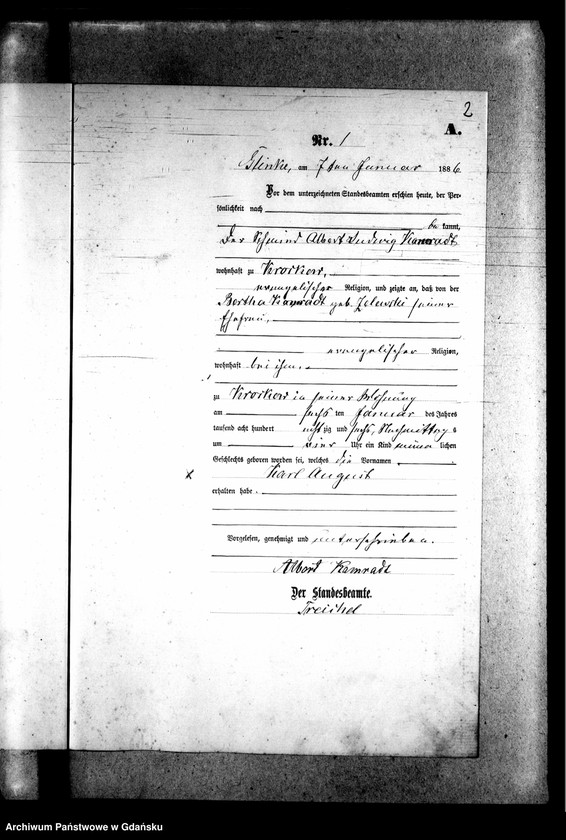 2
A.
Nr. 1
Glinke, am 7ten Januar 1886.
Vor dem unterzeichneten Standesbeamten erschien heute, der Per-
sönlichkeit nach
be kannt,
der Schmied Albert Ludwig Kamradt
wohnhaft zu Krockow,
evangelischer Religion, und zeigte an, daß von der
Bertha Kamradt geb. Zelewski seiner
Ehefrau,
evangelischer Religion,
wohnhaft bei ihm.
zu Krockow in seiner Wohnung
am sechs ten Januar des Jahres
tausend acht hundert acht zig und sechs, Nachmittag s
um vier Uhr ein Kind männ lichen
Geschlechts geboren worden sei, welches die Vornamen
x Karl August
erhalten habe.
Vorgelesen, genehmigt und unterschrieben.
Albert Kamradt
Der Standesbeamte.
Treichel
Archiwum Państwowe w Gdańsku